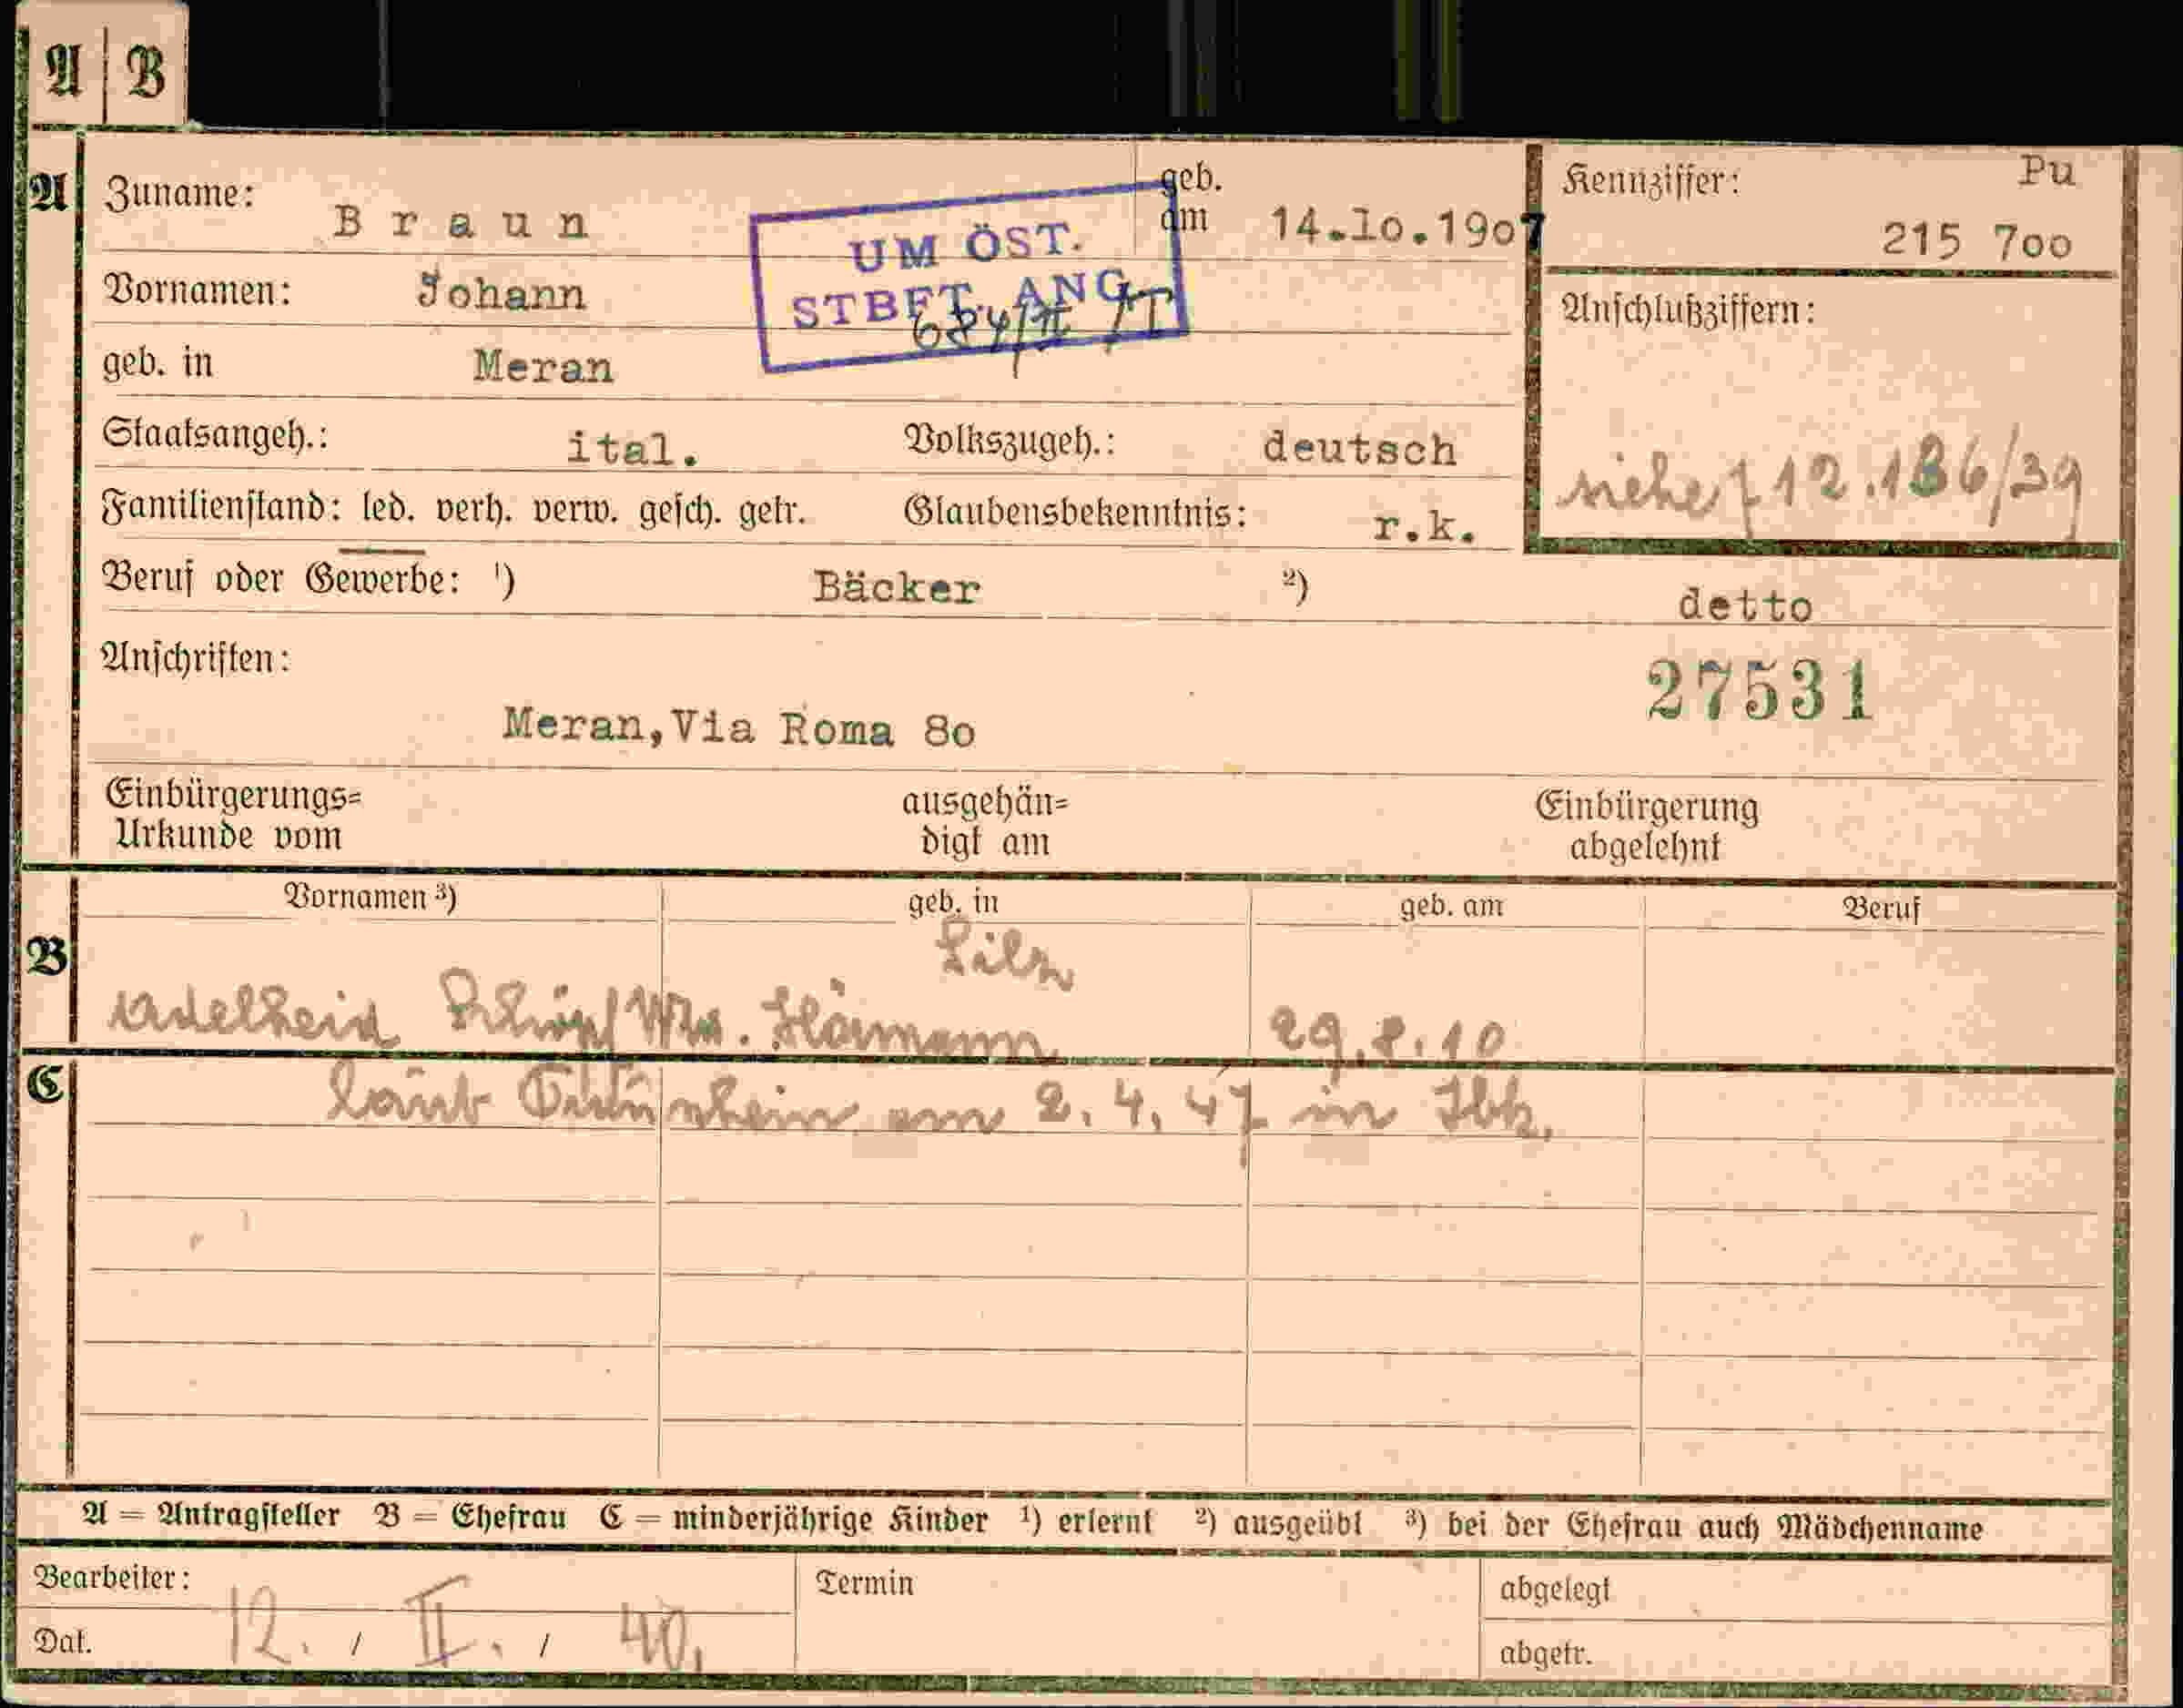 A B
A Zuname: Braun geb. am 14.10.1907 Kennziffer: Pu 215 700
UM ÖST. STBFT. ANG.
Vornamen: Johann
Anschlußziffern:
geb. in Meran
Staatsangeh.: ital. Volkszugeh.: deutsch
siehe 12.136/39
Familienstand: led. verh. verw. gesch. getr. Glaubensbekenntnis: r.k.
Beruf oder Gewerbe: 1) Bäcker 2) detto
Anschriften: 27531
Meran, Via Roma 80
Einbürgerungs= Urkunde vom ausgehän= digt am Einbürgerung abgelehnt
Vornamen 3) geb. in geb. am Beruf
B Silz
Adelheid Schöpf Wtw. Hörmann 29.8.10
C laut Trauschein am 2.4.47 in Ibk.
A = Antragsteller B = Ehefrau C = minderjährige Kinder 1) erlernt 2) ausgeübt 3) bei der Ehefrau auch Mädchenname
Bearbeiter: Termin abgelegt
Dat. 12. / II. / 40. abgetr.